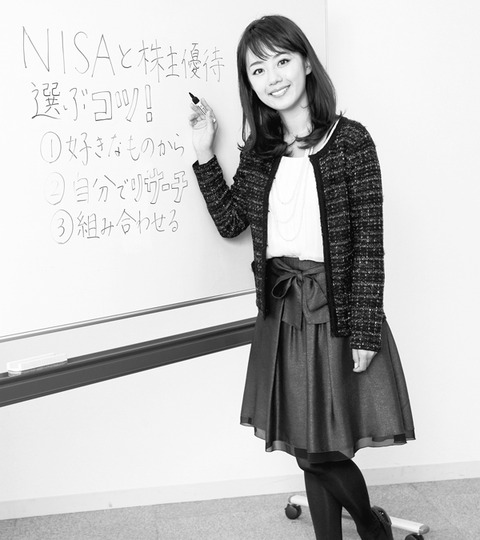 NISAと株主優待
選ぶコツ!
①好きなものから
②自分でリサーチ
③組み合わせる